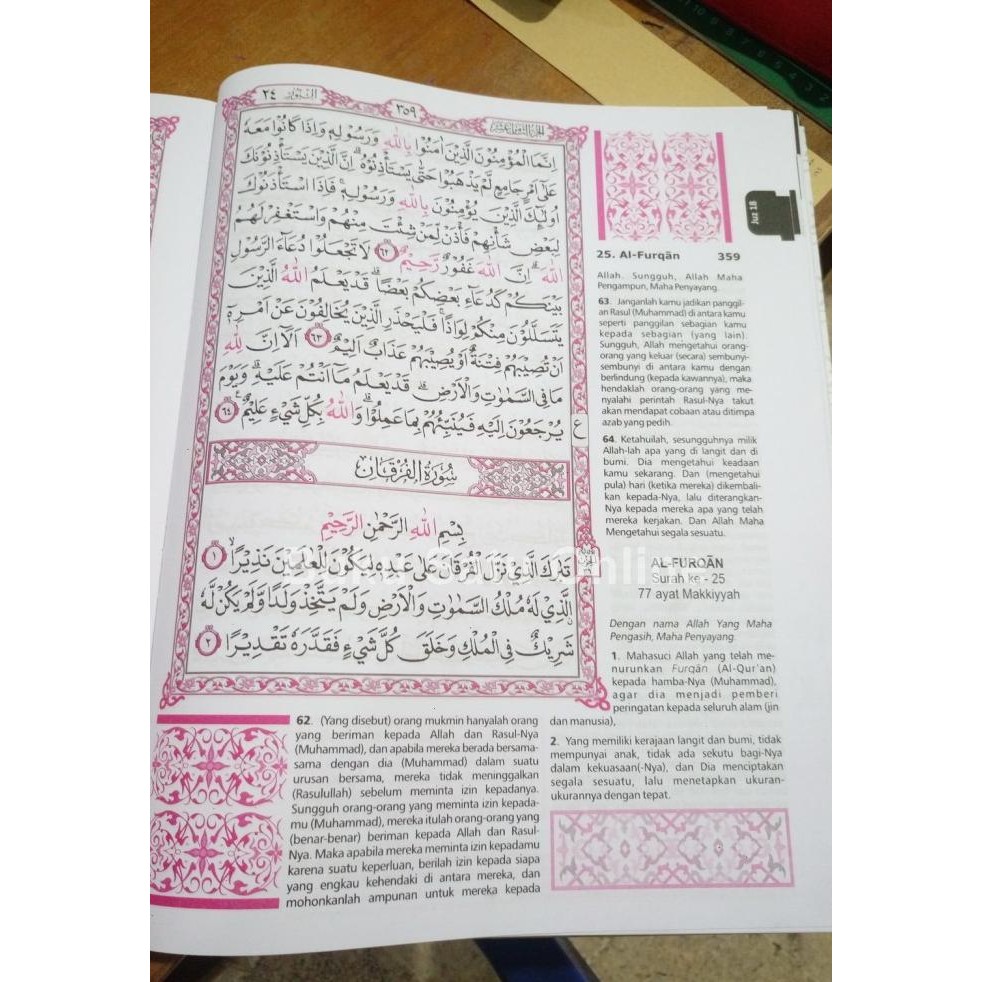 النور ٢٤
٣٥٩
الجزء الثامن عشر
اِنَّمَا الْمُؤْمِنُوْنَ الَّذِيْنَ اٰمَنُوْا بِاللّٰهِ وَرَسُوْلِهٖ وَاِذَا كَانُوْا مَعَهٗ
عَلٰٓى اَمْرٍ جَامِعٍ لَّمْ يَذْهَبُوْا حَتّٰى يَسْتَأْذِنُوْهُۗ اِنَّ الَّذِيْنَ يَسْتَأْذِنُوْنَكَ
اُولٰۤىِٕكَ الَّذِيْنَ يُؤْمِنُوْنَ بِاللّٰهِ وَرَسُوْلِهٖۚ فَاِذَا اسْتَأْذَنُوْكَ
لِبَعْضِ شَأْنِهِمْ فَأْذَنْ لِّمَنْ شِئْتَ مِنْهُمْ وَاسْتَغْفِرْ لَهُمُ
اللّٰهَۗ اِنَّ اللّٰهَ غَفُوْرٌ رَّحِيْمٌ ٦٢ لَا تَجْعَلُوْا دُعَاۤءَ الرَّسُوْلِ
بَيْنَكُمْ كَدُعَاۤءِ بَعْضِكُمْ بَعْضًاۗ قَدْ يَعْلَمُ اللّٰهُ الَّذِيْنَ
يَتَسَلَّلُوْنَ مِنْكُمْ لِوَاذًاۚ فَلْيَحْذَرِ الَّذِيْنَ يُخَالِفُوْنَ عَنْ اَمْرِهٖٓ
اَنْ تُصِيْبَهُمْ فِتْنَةٌ اَوْ يُصِيْبَهُمْ عَذَابٌ اَلِيْمٌ ٦٣ اَلَآ اِنَّ لِلّٰهِ
مَا فِى السَّمٰوٰتِ وَالْاَرْضِۗ قَدْ يَعْلَمُ مَآ اَنْتُمْ عَلَيْهِۗ وَيَوْمَ
يُرْجَعُوْنَ اِلَيْهِ فَيُنَبِّئُهُمْ بِمَا عَمِلُوْاۗ وَاللّٰهُ بِكُلِّ شَيْءٍ عَلِيْمٌ ٦٤
ع
سُوْرَةُ الْفُرْقَانِ
بِسْمِ اللّٰهِ الرَّحْمٰنِ الرَّحِيْمِ
تَبٰرَكَ الَّذِيْ نَزَّلَ الْفُرْقَانَ عَلٰى عَبْدِهٖ لِيَكُوْنَ لِلْعٰلَمِيْنَ نَذِيْرًا ١
الَّذِيْ لَهٗ مُلْكُ السَّمٰوٰتِ وَالْاَرْضِ وَلَمْ يَتَّخِذْ وَلَدًا وَّلَمْ يَكُنْ لَّهٗ
شَرِيْكٌ فِى الْمُلْكِ وَخَلَقَ كُلَّ شَيْءٍ فَقَدَّرَهٗ تَقْدِيْرًا ٢
62. (Yang disebut) orang mukmin hanyalah orang
yang beriman kepada Allah dan Rasul-Nya
(Muhammad), dan apabila mereka berada bersama-
sama dengan dia (Muhammad) dalam suatu
urusan bersama, mereka tidak meninggalkan
(Rasulullah) sebelum meminta izin kepadanya.
Sungguh orang-orang yang meminta izin kepada-
mu (Muhammad), mereka itulah orang-orang yang
(benar-benar) beriman kepada Allah dan Rasul-
Nya. Maka apabila mereka meminta izin kepadamu
karena suatu keperluan, berilah izin kepada siapa
yang engkau kehendaki di antara mereka, dan
mohonkanlah ampunan untuk mereka kepada
Juz 18
25. Al-Furqān 359
Allah. Sungguh, Allah Maha
Pengampun, Maha Penyayang.
63. Janganlah kamu jadikan panggil-
an Rasul (Muhammad) di antara kamu
seperti panggilan sebagian kamu
kepada sebagian (yang lain).
Sungguh, Allah mengetahui orang-
orang yang keluar (secara) sembunyi-
sembunyi di antara kamu dengan
berlindung (kepada kawannya), maka
hendaklah orang-orang yang me-
nyalahi perintah Rasul-Nya takut
akan mendapat cobaan atau ditimpa
azab yang pedih.
64. Ketahuilah, sesungguhnya milik
Allah-lah apa yang di langit dan di
bumi. Dia mengetahui keadaan
kamu sekarang. Dan (mengetahui
pula) hari (ketika mereka) dikembali-
kan kepada-Nya, lalu diterangkan-
Nya kepada mereka apa yang telah
mereka kerjakan. Dan Allah Maha
Mengetahui segala sesuatu.
AL-FURQĀN
Surah ke - 25
77 ayat Makkiyyah
Dengan nama Allah Yang Maha
Pengasih, Maha Penyayang
1. Mahasuci Allah yang telah me-
nurunkan Furqān (Al-Qur'an)
kepada hamba-Nya (Muhammad),
agar dia menjadi pemberi
peringatan kepada seluruh alam (jin
dan manusia),
2. Yang memiliki kerajaan langit dan bumi, tidak
mempunyai anak, tidak ada sekutu bagi-Nya
dalam kekuasaan(-Nya), dan Dia menciptakan
segala sesuatu, lalu menetapkan ukuran-
ukurannya dengan tepat.